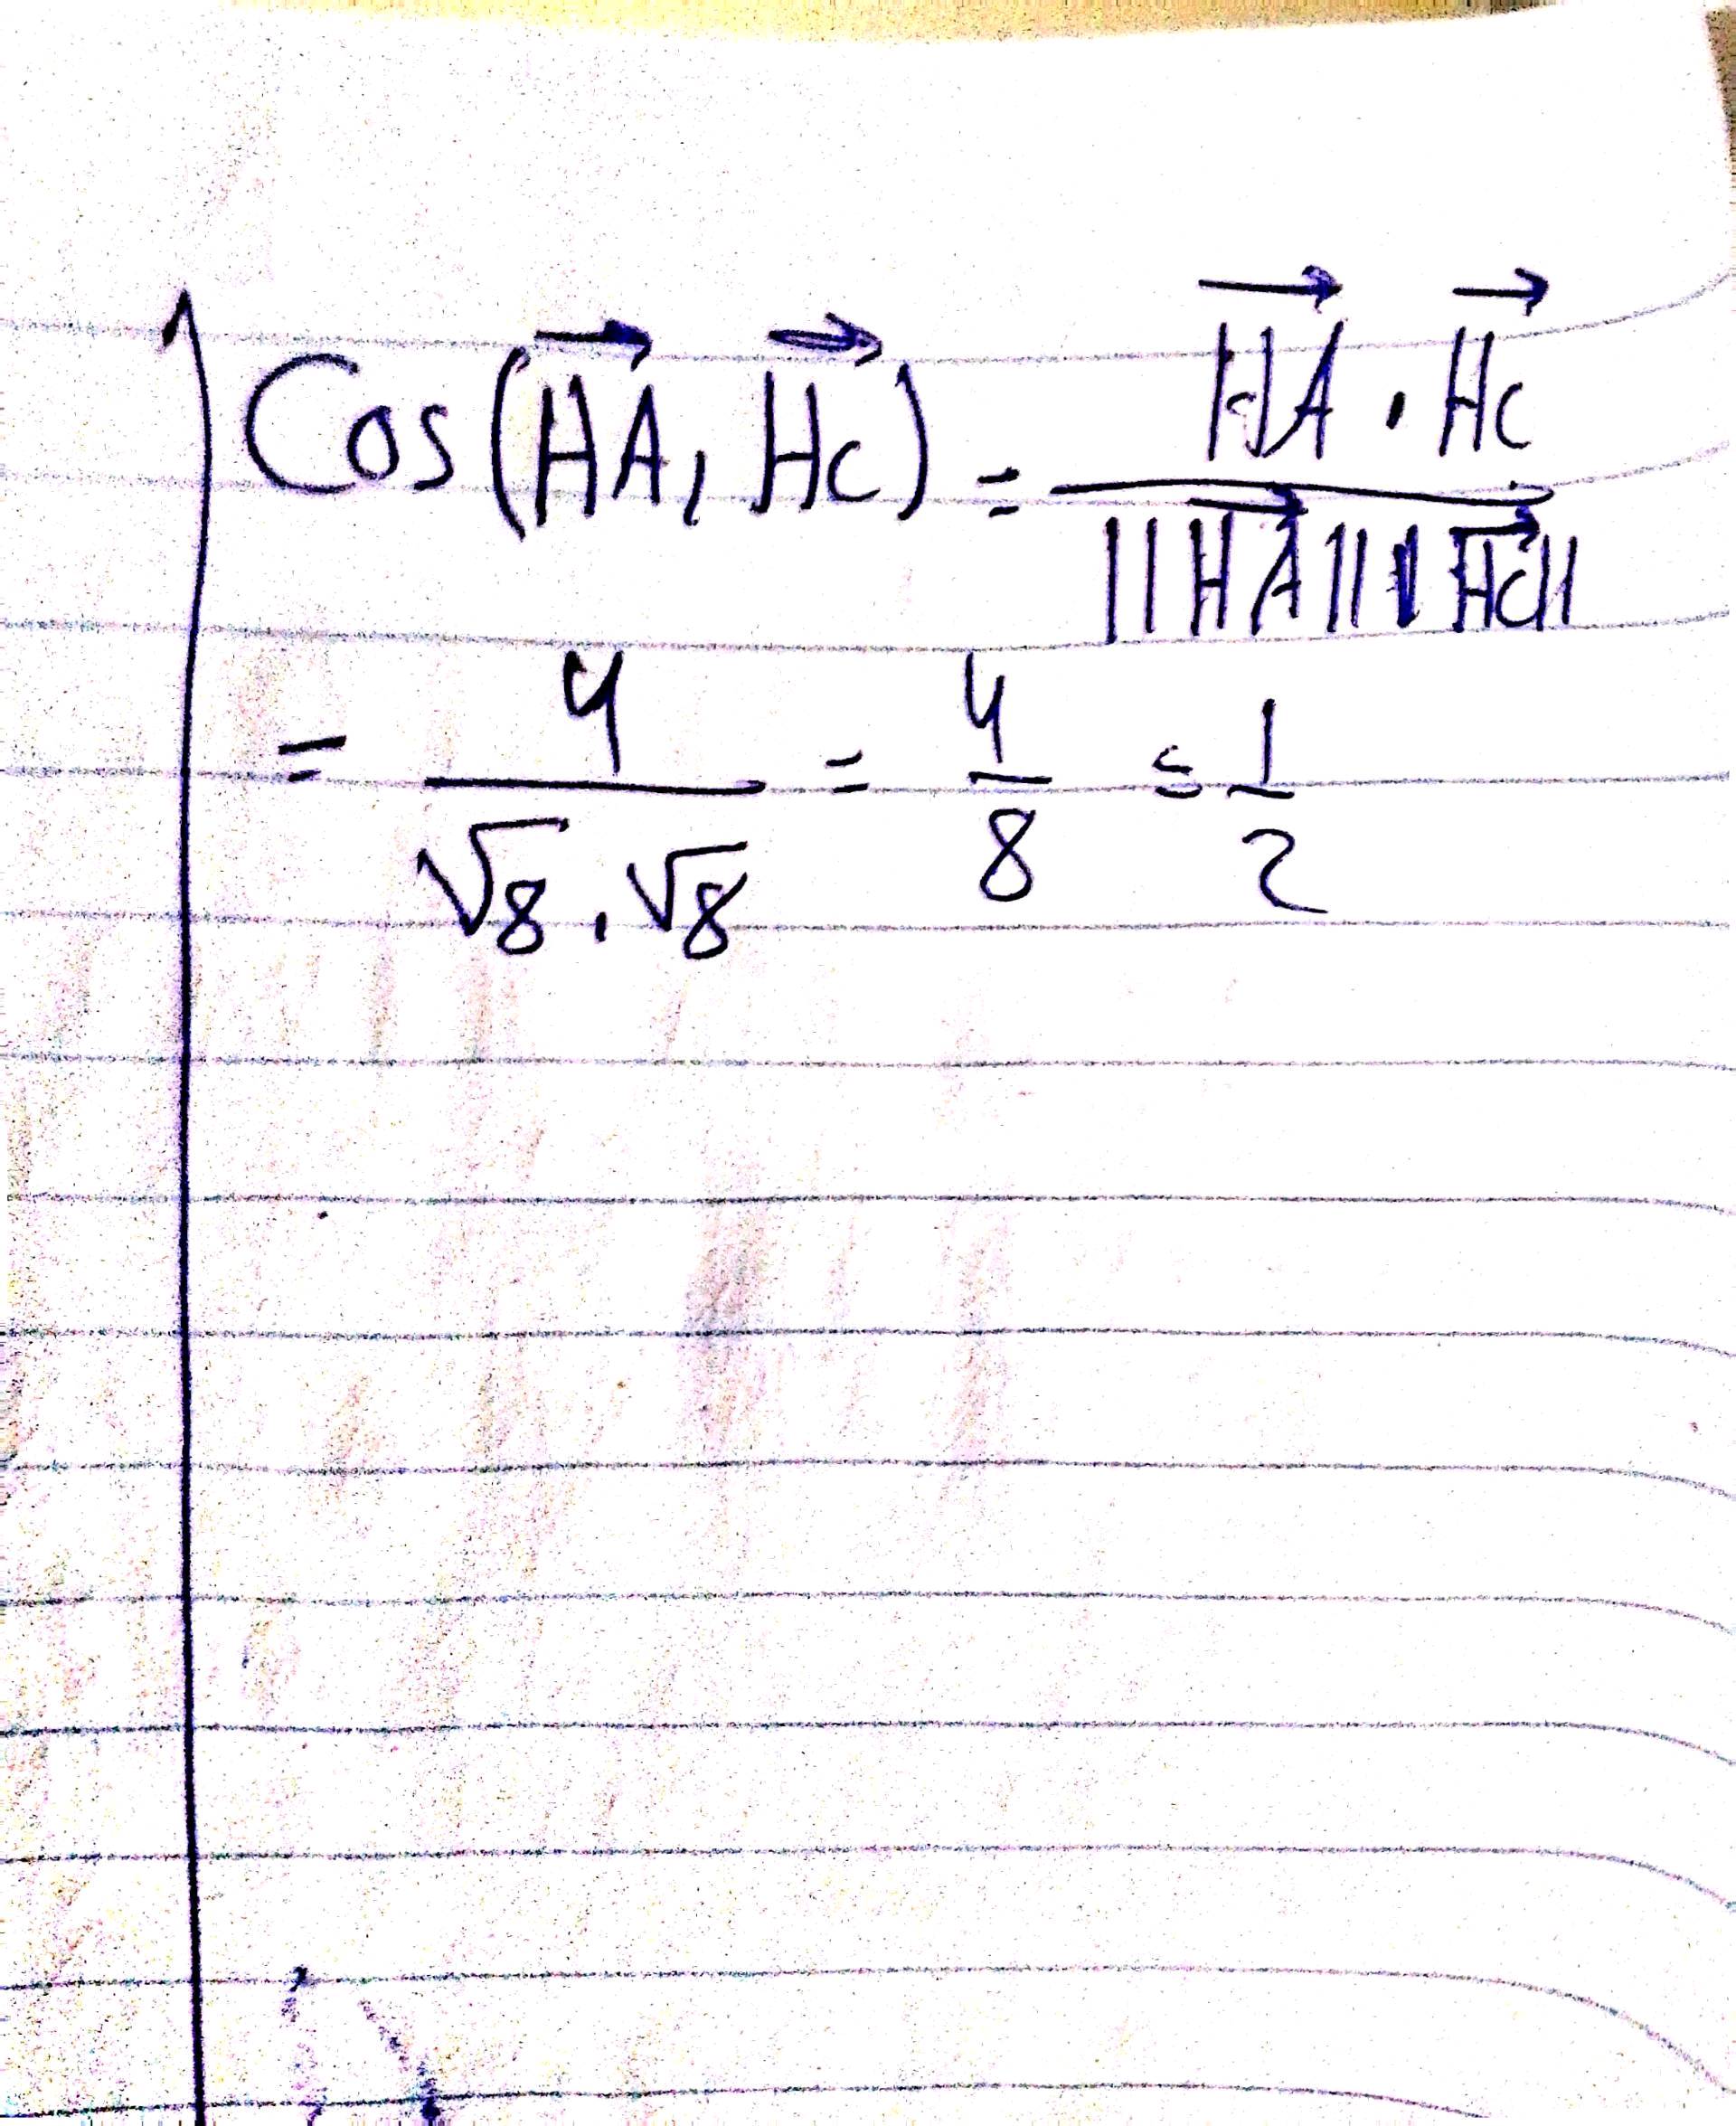 Cos(\overrightarrow{HA}, \overrightarrow{HC}) = \frac{\overrightarrow{HA} \cdot \overrightarrow{HC}}{||\overrightarrow{HA}|| ||\overrightarrow{HC}||}
= \frac{4}{\sqrt{8} \cdot \sqrt{8}} = \frac{4}{8} = \frac{1}{2}